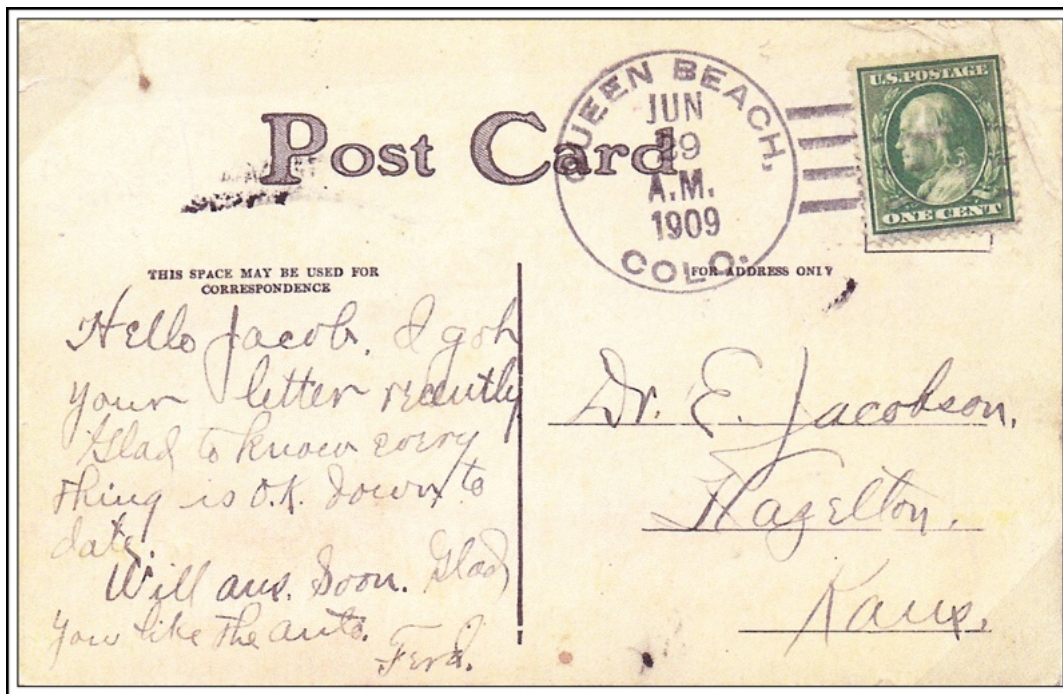 Post Card
QUEEN BEACH,
JUN
29
A.M.
1909
COLO.
U.S. POSTAGE
ONE CENT
THIS SPACE MAY BE USED FOR
CORRESPONDENCE
FOR ADDRESS ONLY
Hello Jacob, I got
your letter recently
Glad to know every
thing is O.K. down to
date.
Will ans. Soon. Glad
you like the auto.
Ferd.
Dr. E. Jacobson.
Hazelton.
Kans.